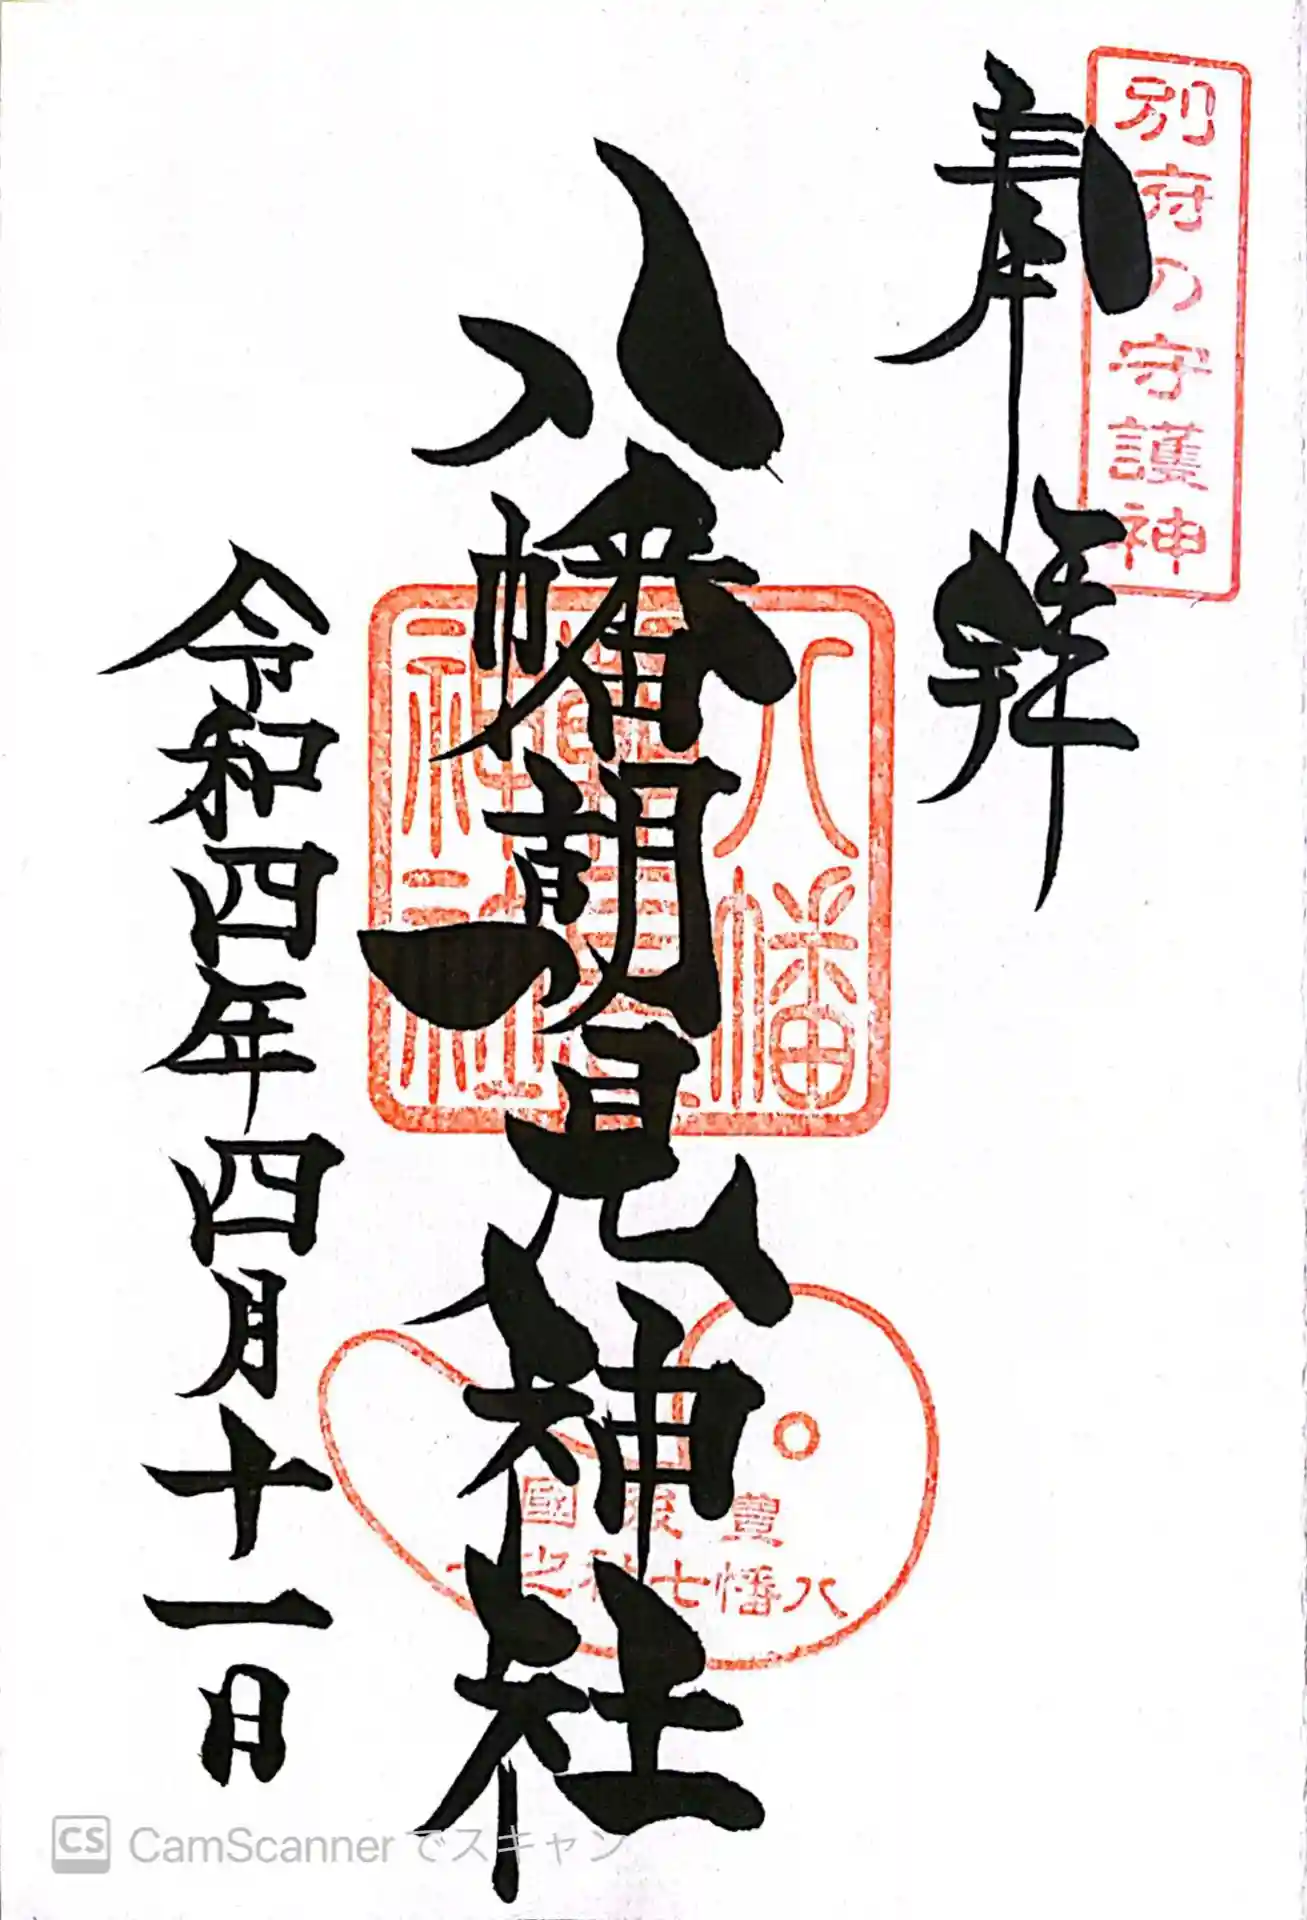 別府の守護神
奉拝
八幡朝見神社
八幡朝見神社
豊後國
八幡七社之一
令和四年四月十一日
CS CamScannerでスキャン